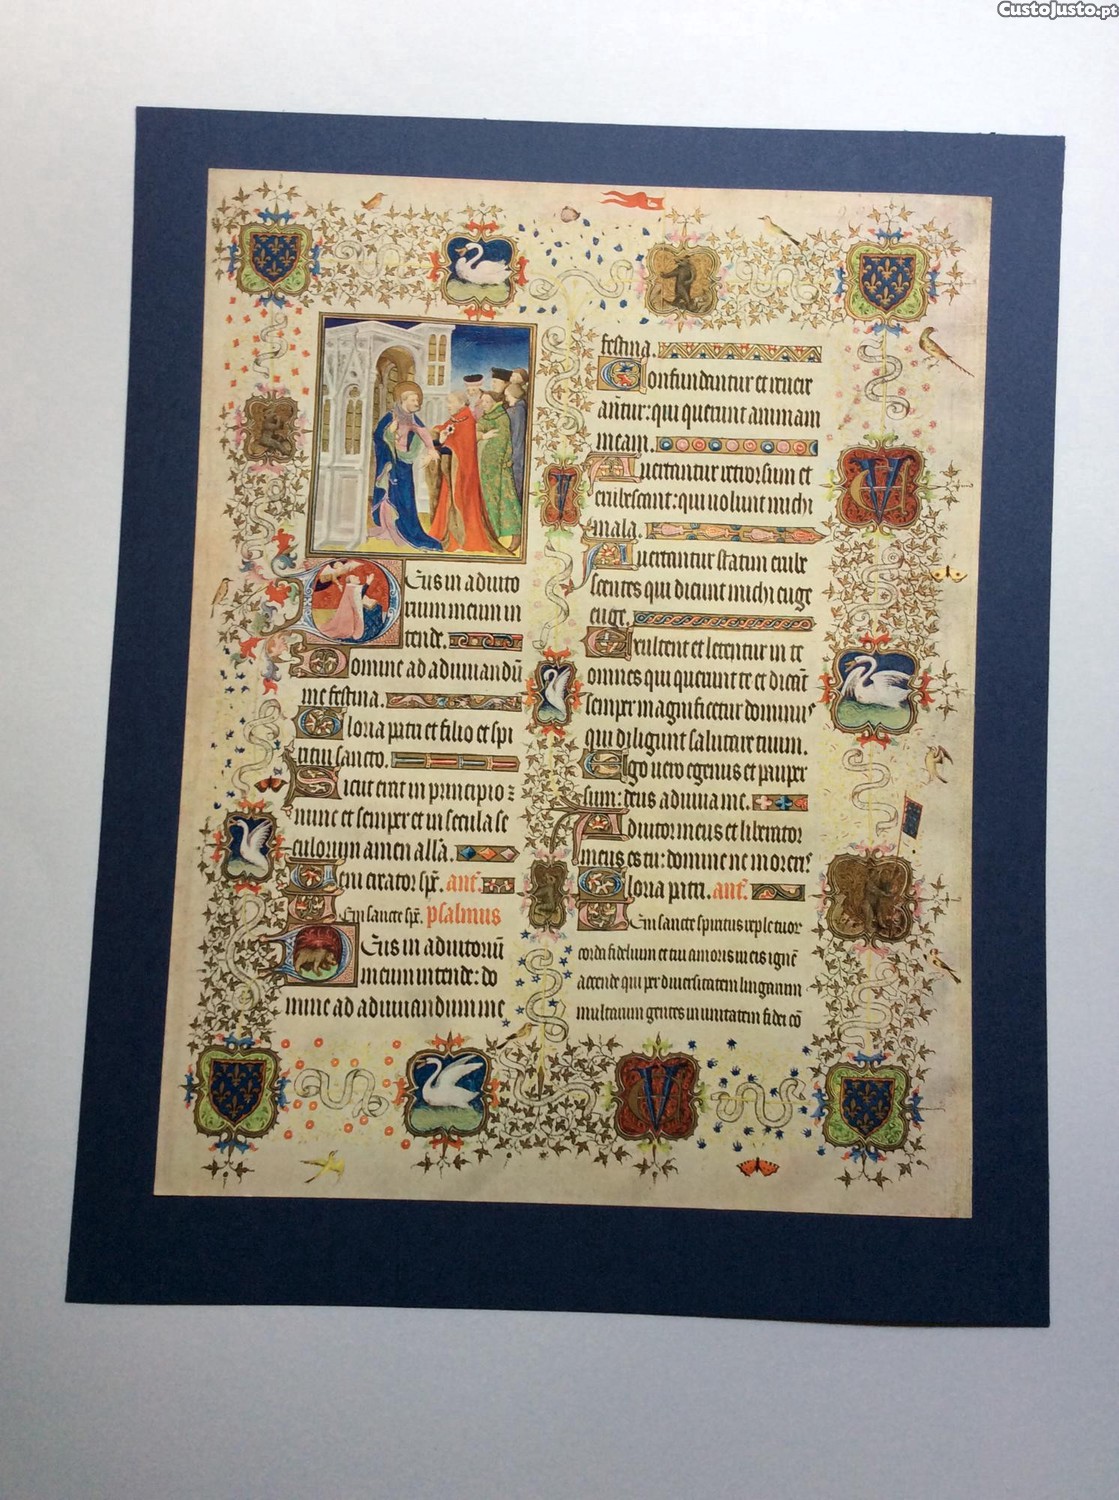 CustoJusto.pt
Eus in adiuto
rium meum in
tende.
Domine ad adiuuandū
me festina.
Gloria patri et filio et spi
ritui sancto.
Sicut erat in principio
nunc et semper et in secula se
culorum amen all'a.
Veni creator sp̄c. ant̄.
Veni sancte sp̄c. psalmus
Deus in adiutoriū
meum intende: do
mine ad adiuuandum me
festina.
Confundantur et reuere
antur: qui querunt animam
meam.
Auertantur retrorsum et
erubescant: qui uolunt michi
mala.
Auertantur statim erube
scentes qui dicunt michi euge
euge.
Exultent et letentur in te
omnes qui querunt te et dicāt
semper magnificetur dominus
qui diligunt salutare tuum.
Ego uero egenus et pauper
sum: deus adiuua me.
Adiutor meus et liberator
meus es tu: domine ne moreris
Gloria patri. ant̄.
Veni sancte spiritus reple tuor
corda fidelium et tui amoris in eis ignē
accende qui per diuersitatem linguarum
multarum gentes in unitatem fidei cō